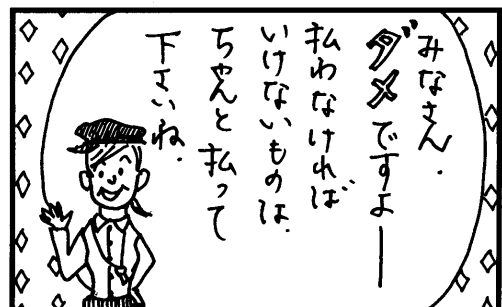 みなさん.
ダメですよー
払わなければ
いけないものは.
ちゃんと払って
下さいね.